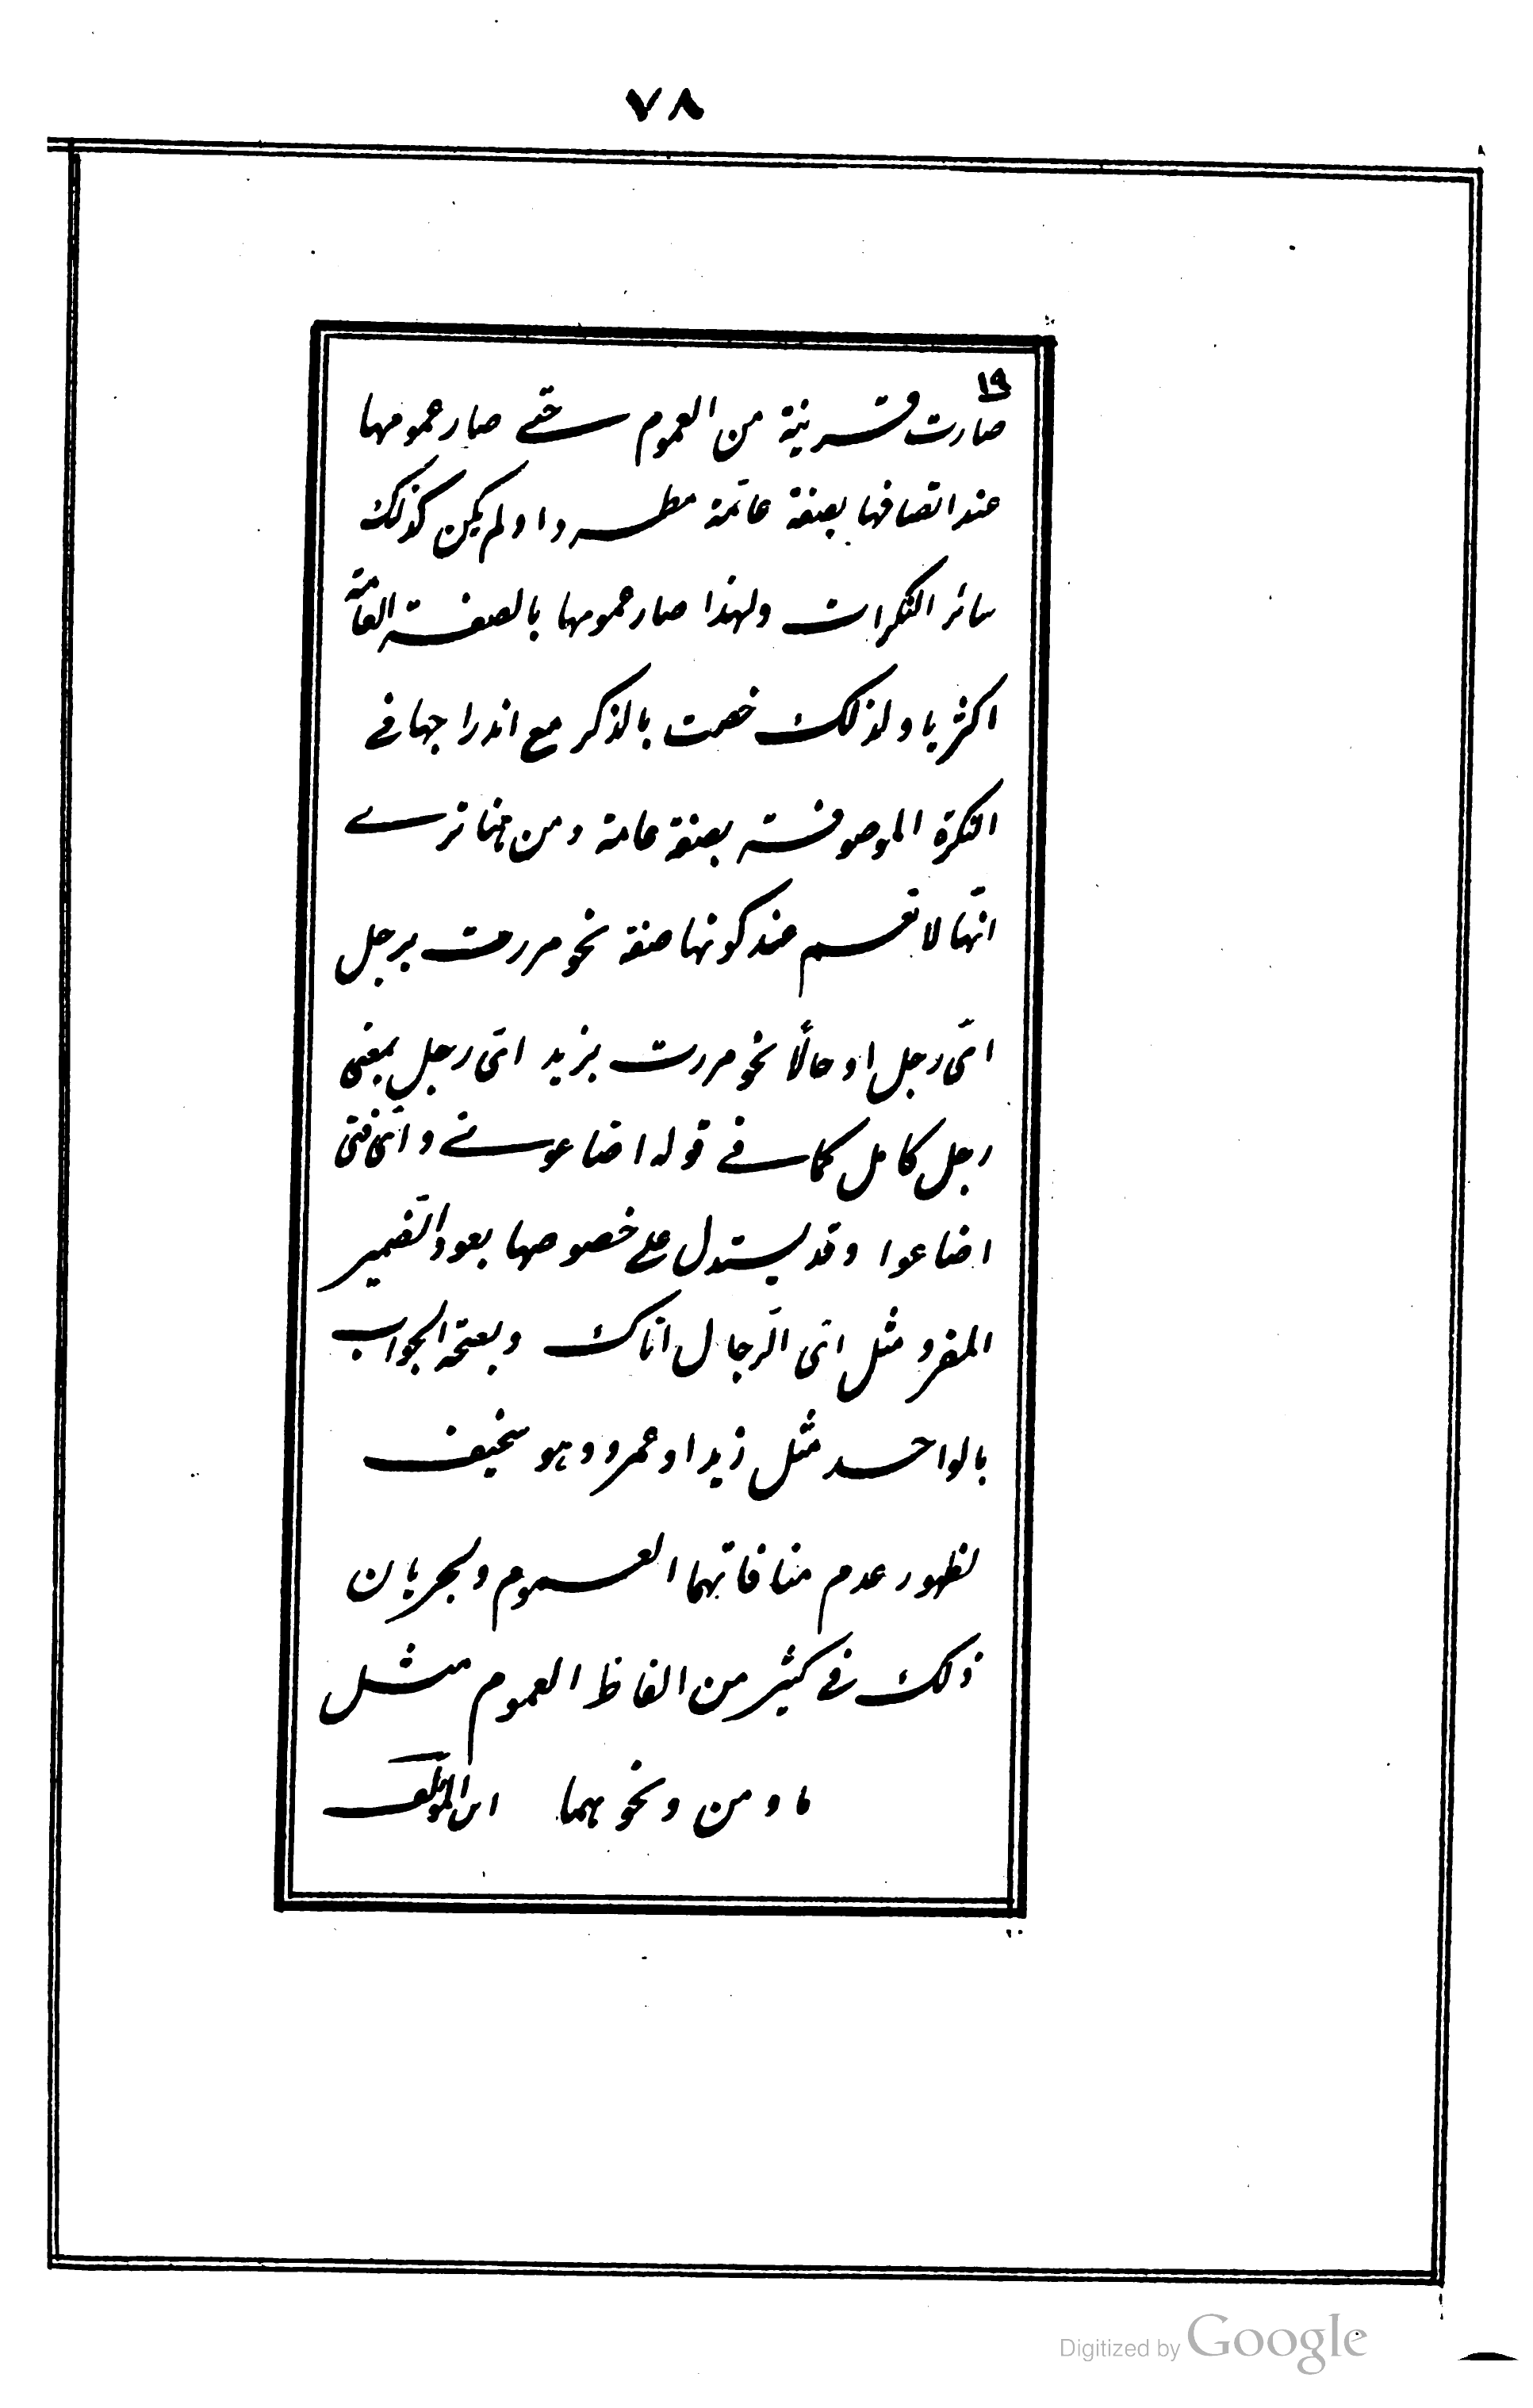 ٧٨
١٩
صارت قرينة من العموم حتے صار عمومها
عند اتصافها بصفة عامّة مطردا ولم يكن كذلك
سائر النكرات ولهذا صار عمومها بالصفة العامّة
اكثريا ولذلك خصت بالذكر مع اندراجها فے
النكرة الموصوفة بصفة عامة ومن هنا ترے
انّها لا تعم عند كونها صفة نحو مررت برجل
اىّ رجل او حالًا نحو مررت بزيد اىّ رجل بمعنى
رجل كامل كما فے قوله اضاعونے واىّ فتى
اضاعوا وقد يستدل علے خصوصها بعود الضّمير
المفرد مثل اىّ الرّجال اتاك وبصحّة الجواب
بالواحد مثل زيد او عمرو وهو سخيف
لظهور عدم منافاتهما العموم ولجريان
ذلك فى كثير من الفاظ العموم مثل
ما ومن ونحوهما المؤلف
Digitized by Google